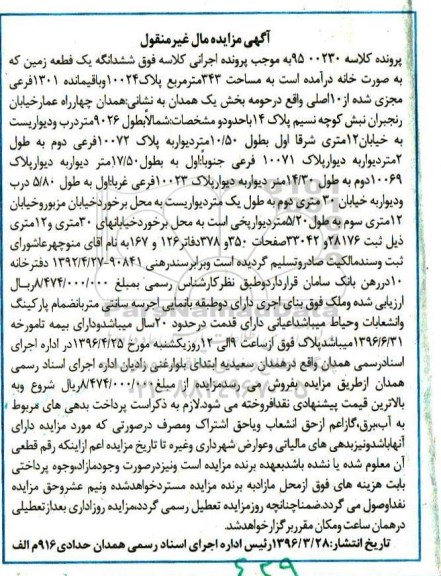 آگهی مزایده مال غیرمنقول
پرونده کلاسه ۰۰۲۳۰ ۹۵به موجب پرونده اجرائی کلاسه فوق ششدانگه یک قطعه زمین که
به صورت خانه درآمده است به مساحت ۳۴۳مترمربع پلاک۱۰۰۲۴وباقیمانده ۱۳۰۱فرعی
مجزی شده از۱۰اصلی واقع درحومه بخش یک همدان به نشانی:همدان چهارراه عمارخیابان
رنجبران نبش کوچه نسیم پلاک ۱۴باحدودو مشخصات:شمالأبطول ۹۰۲۶متردرب ودیواریست
به خیابان۱۲متری شرقا اول بطول ۱۰/۵۰متردیواربه پلاک ۱۰۰۷۲فرعی دوم به طول
۲متردیواربه دیوارپلاک ۱۰۰۷۱ فرعی جنوبأ:اول به طول۱۷/۵۰متر دیواربه دیوارپلاک
۱۰۰۶۹دوم به طول ۱۴/۳۰متر دیواربه دیوارپلاک ۱۰۰۲۳فرعی غربا:اول به طول ۵/۸۰ درب
ودیواربه خیابان ۳۰متری دوم به طول یک متردیواریست به محل برخوردخیابان مزبوروخیابان
۱۲متری سوم به طول۵/۲۰متردیواریخی است به محل برخوردخیابانهای ۳۰متری و۱۲متری
ذیل ثبت ۲۸۱۷۶و ۳۳۰۴۲صفحات ۳۵۰و ۳۷۸دفاتر۱۲۶ و ۱۶۷به نام اقای منوچهرعاشورای
ثبت وسندمالکیت صادروتسلیم گردیده است وبرابرسندرهنی ۹۰۸۴۱-۱۳۹۲/۴/۲۷ دفترخانه
۱۰دررهن بانک سامان قراردادوطبق نظرکارشناس رسمی بمبلغ ۸/۴۷۴/۰۰۰/۰۰۰ریال
ارزیابی شده وملک فوق بنای اجری دارای دوطبقه بانمایی اجرسه سانتی مترباانضمام پارکینگ
وانشعابات وحیاط میباشداعیانی دارای قدمت درحدود ۲۰سال میباشدودارای بیمه تامورخه
۱۳۹۶/۶/۳۱میباشدپلاک فوق ازساعت ۹الی ۱۲روزیکشنبه مورخ ۱۳۹۶/۴/۲۵در اداره اجرای
اسنادرسمی همدان واقع درهمدان سعیدیه ابتدای بلوارغنی زادیان اداره اجرای اسناد رسمی
همدان ازطریق مزایده بفروش می رسدمزایده از مبلغ ۸/۴۷۴/۰۰۰/۰۰۰ریال شروع وبه
بالاترین قیمت پیشنهادی نقدافروخته می شود.لازم به ذکراست پرداخت بدهی های مربوط
به آب،برق،گازاعم ازحق انشعاب ویاحق اشتراک ومصرف درصورتی که مورد مزایده دارای
آنهاباشدونیزبدهی های مالیاتی وعوارض شهرداری وغیره تا تاریخ مزایده اعم ازاینکه رقم قطعی
آن معلوم شده یا نشده باشدبعهده برنده مزایده است ونیزدرصورت وجودمازاد،وجوه پرداختی
بابت هزینه های فوق ازمحل مازادبه برنده مزایده مستردخواهدشده ونیم عشروحق مزایده
نقداوصول می گردد.ضمناچنانچه روزمزایده تعطیل رسمی گردد،مزایده روزاداری بعدازتعطیلی
درهمان ساعت ومکان مقرربرگزارخواهدشد.
تاریخ انتشار:۱۳۹۶/۳/۲۸رئیس اداره اجرای اسناد رسمی همدان حدادی۹۱۶م الف